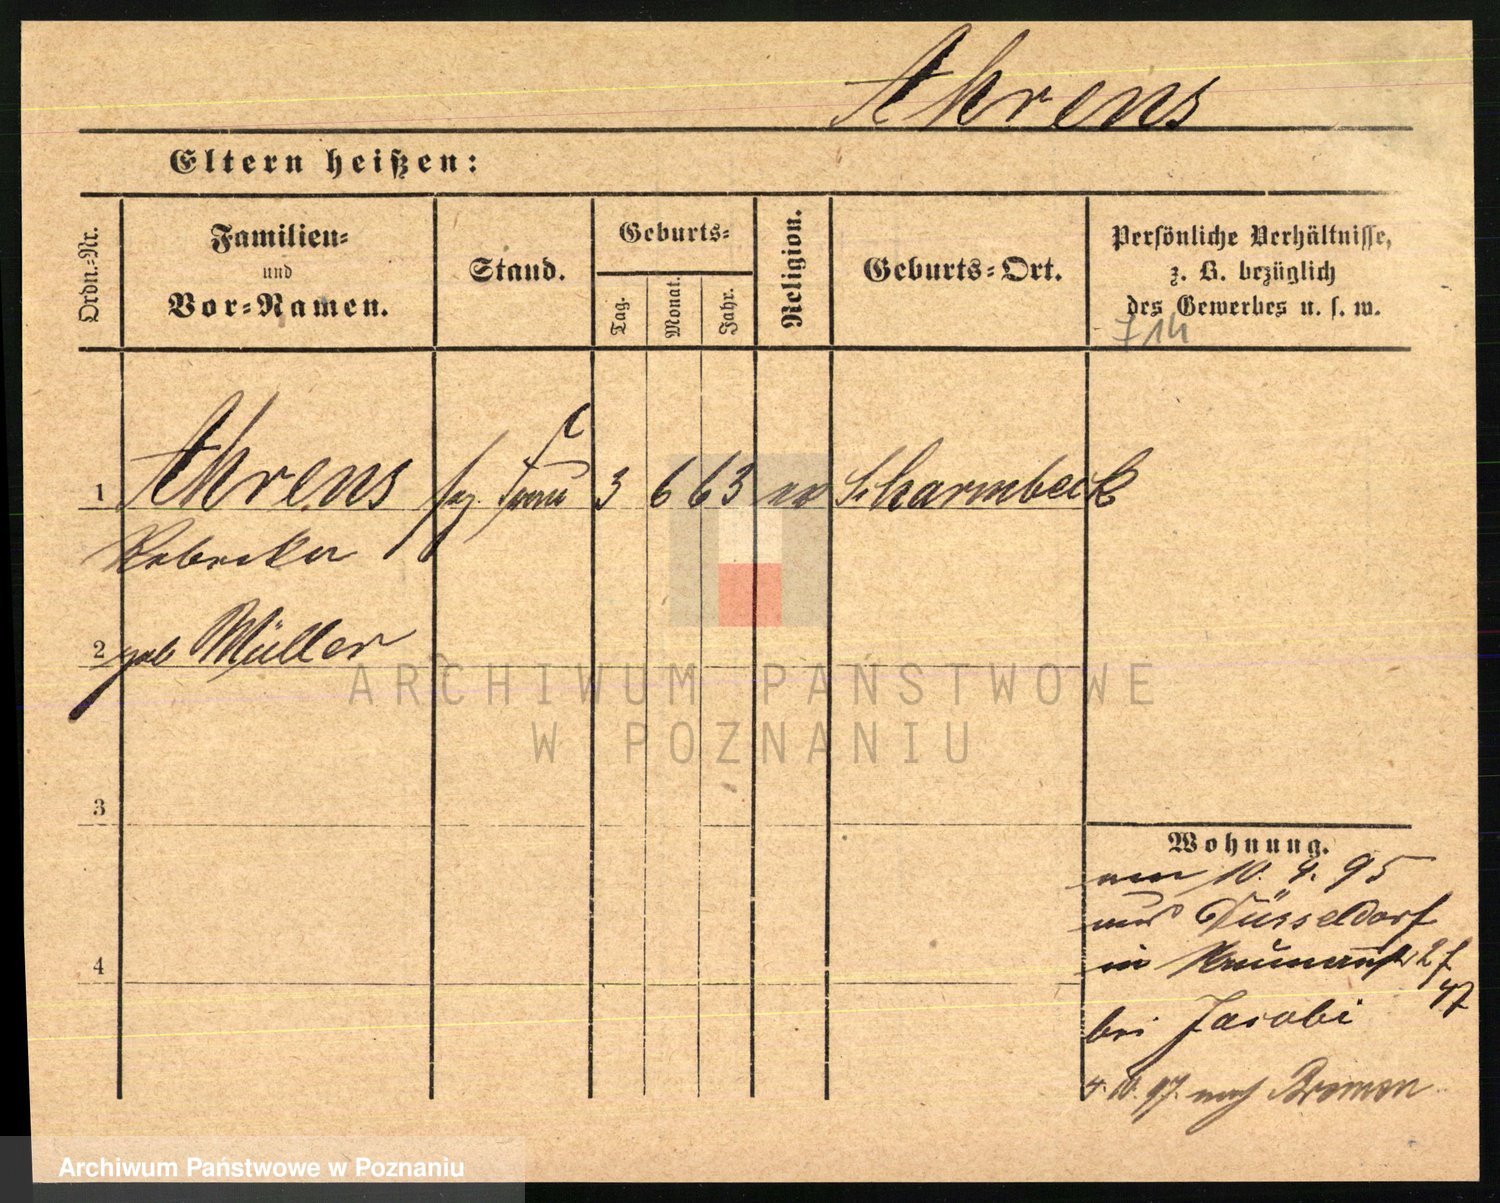 Ahrens
Eltern heißen:
Ordn.-Nr.
Familien-
und
Vor-Namen.
Stand.
Geburts-
Tag.
Monat.
Jahr.
Religion.
Geburts-Ort.
Persönliche Verhältnisse,
z. B. bezüglich
des Gewerbes u. s. w.
714
1 Ahrens Frau 3 6 63 ev Scharmbeck
Rebecka
2 geb Müller
3
4
Wohnung.
am 10. 4. 95
aus Düsseldorf
in
bei Jacobi
4. 10. 97. nach Bremen
ARCHIWUM PAŃSTWOWE
W POZNANIU
Archiwum Państwowe w Poznaniu